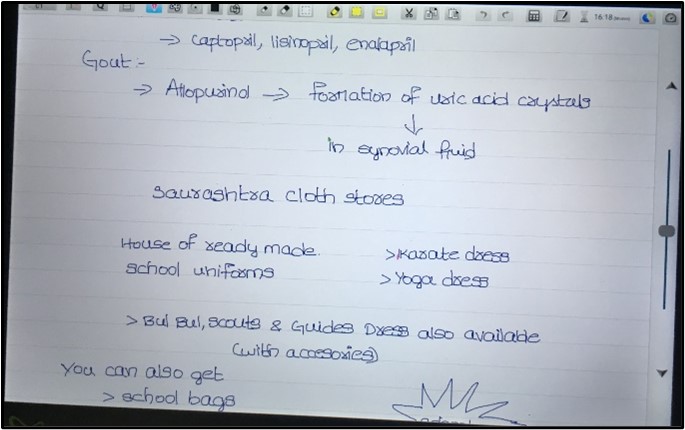 16:18
→ captopril, lisinopril, enalapril
Gout :-
→ Allopurinol → formation of uric acid crystals
↓
in synovial fluid
Saurashtra cloth stores
House of ready made
school uniforms
> Karate dress
> Yoga dress
> Bul Bul, scouts & Guides Dress also available
(with accesories)
You can also get
> school bags